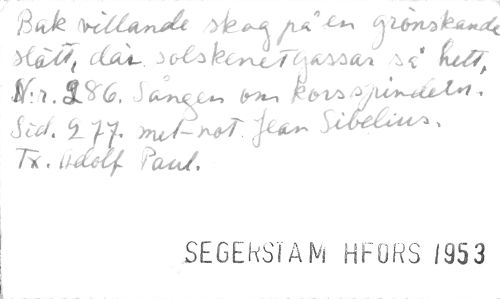 Bak villande skog på en grönskande
slätt, där solskenet gassar så hett,
N:r. 286. Sången om korsspindeln.
Sid. 277. met-not. Jean Sibelius.
Tx. Adolf Paul.
SEGERSTAM HFORS 1953